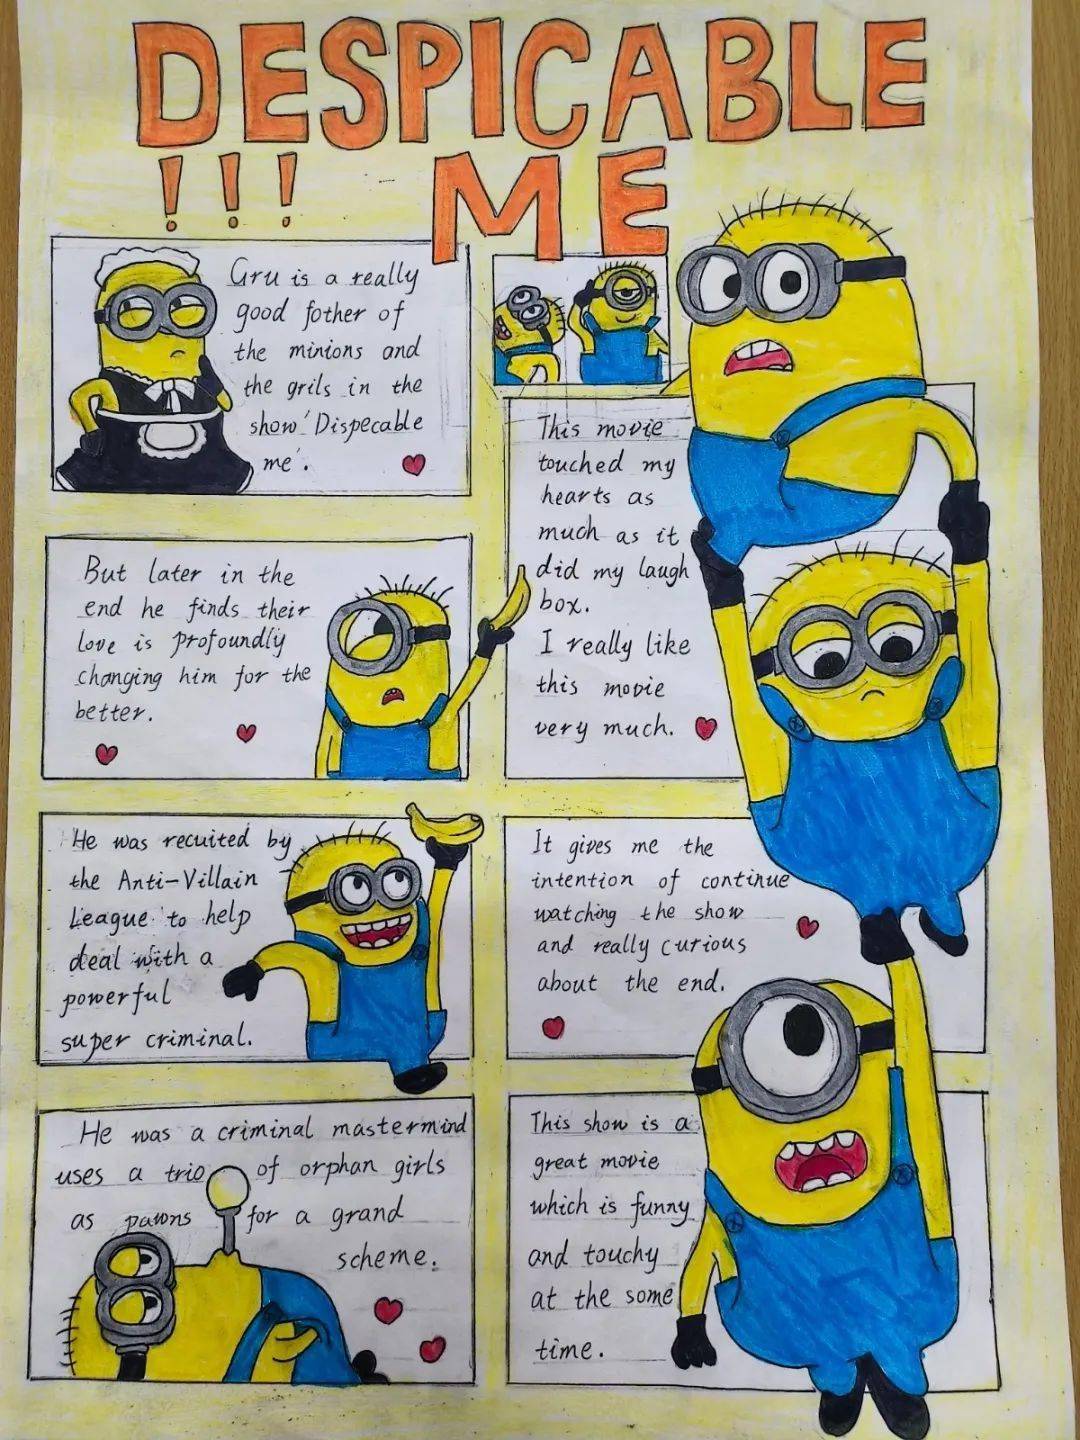 DESPICABLE
!!! ME
Gru is a really
good fother of
the minions and
the grils in the
show 'Dispecable
me'.
But later in the
end he finds their
love is profoundly
changing him for the
better.
He was recuited by
the Anti-Villain
League to help
deal with a
powerful
super criminal.
He was a criminal mastermind
uses a trio of orphan girls
as pawns for a grand
scheme.
This movie
touched my
hearts as
much as it
did my laugh
box.
I really like
this movie
very much.
It gives me the
intention of continue
watching the show
and really curious
about the end.
This show is a
great movie
which is funny
and touchy
at the some
time.